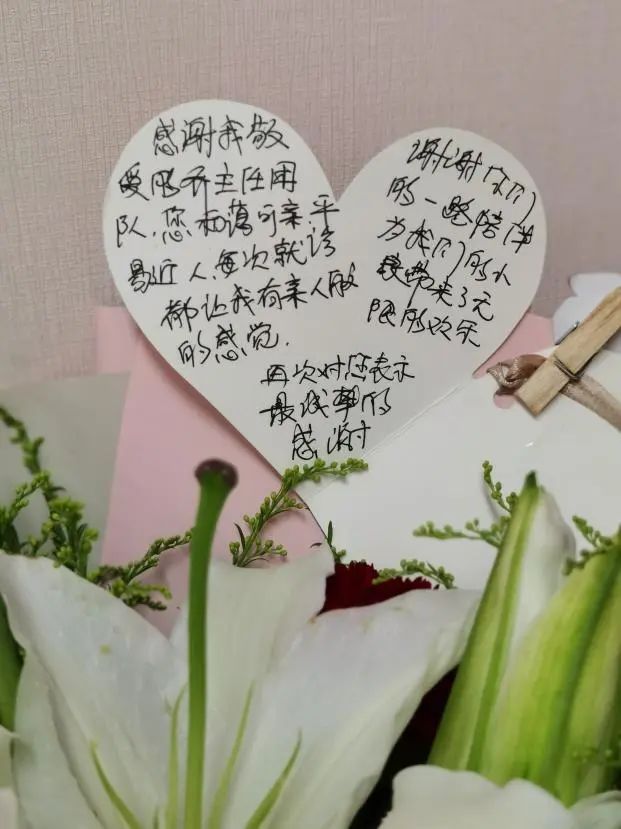 感谢我敬
爱的乔主任团
队，您和蔼可亲，平
易近人，每次就诊
都让我有亲人般
的感觉。
谢谢你们
的一路陪伴
为我们的小
家带来了无
限的欢乐
再次对您表示
最诚挚的
感谢